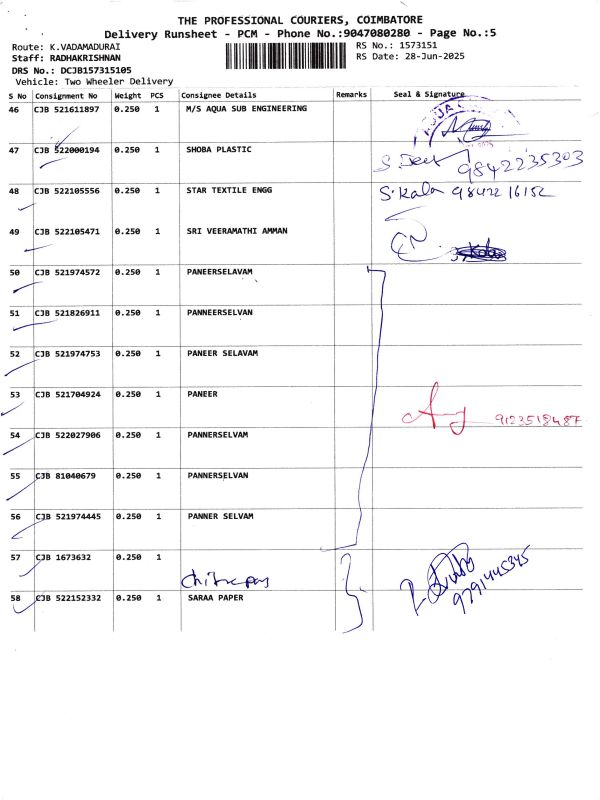 THE PROFESSIONAL COURIERS, COIMBATORE
Delivery Runsheet - PCM - Phone No.:9047080280 - Page No.:5
Route: K.VADAMADURAI RS No.: 1573151
Staff: RADHAKRISHNAN RS Date: 28-Jun-2025
DRS No.: DCJB157315105
Vehicle: Two Wheeler Delivery
S No Consignment No Weight PCS Consignee Details Remarks Seal & Signature
46 CJB 521611897 0.250 1 M/S AQUA SUB ENGINEERING
47 CJB 522000194 0.250 1 SHOBA PLASTIC 9842235303
48 CJB 522105556 0.250 1 STAR TEXTILE ENGG S. Kala 9842216152
49 CJB 522105471 0.250 1 SRI VEERAMATHI AMMAN
50 CJB 521974572 0.250 1 PANEERSELAVAM
51 CJB 521826911 0.250 1 PANNEERSELVAN
52 CJB 521974753 0.250 1 PANEER SELAVAM
53 CJB 521704924 0.250 1 PANEER 9123518487
54 CJB 522027906 0.250 1 PANNERSELVAM
55 CJB 81040679 0.250 1 PANNERSELVAN
56 CJB 521974445 0.250 1 PANNER SELVAM
57 CJB 1673632 0.250 1
58 CJB 522152332 0.250 1 SARAA PAPER 9791445345